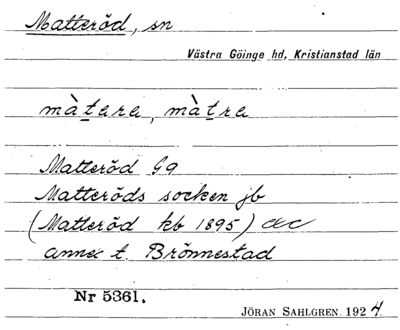 Matteröd, sn
Västra Göinge hd, Kristianstad län
màtara, màtra
Matteröd G9
Matteröds socken jb
(Matteröd kb 1895)
annex t. Brönnestad
Nr 5361.
JÖRAN SAHLGREN 1924